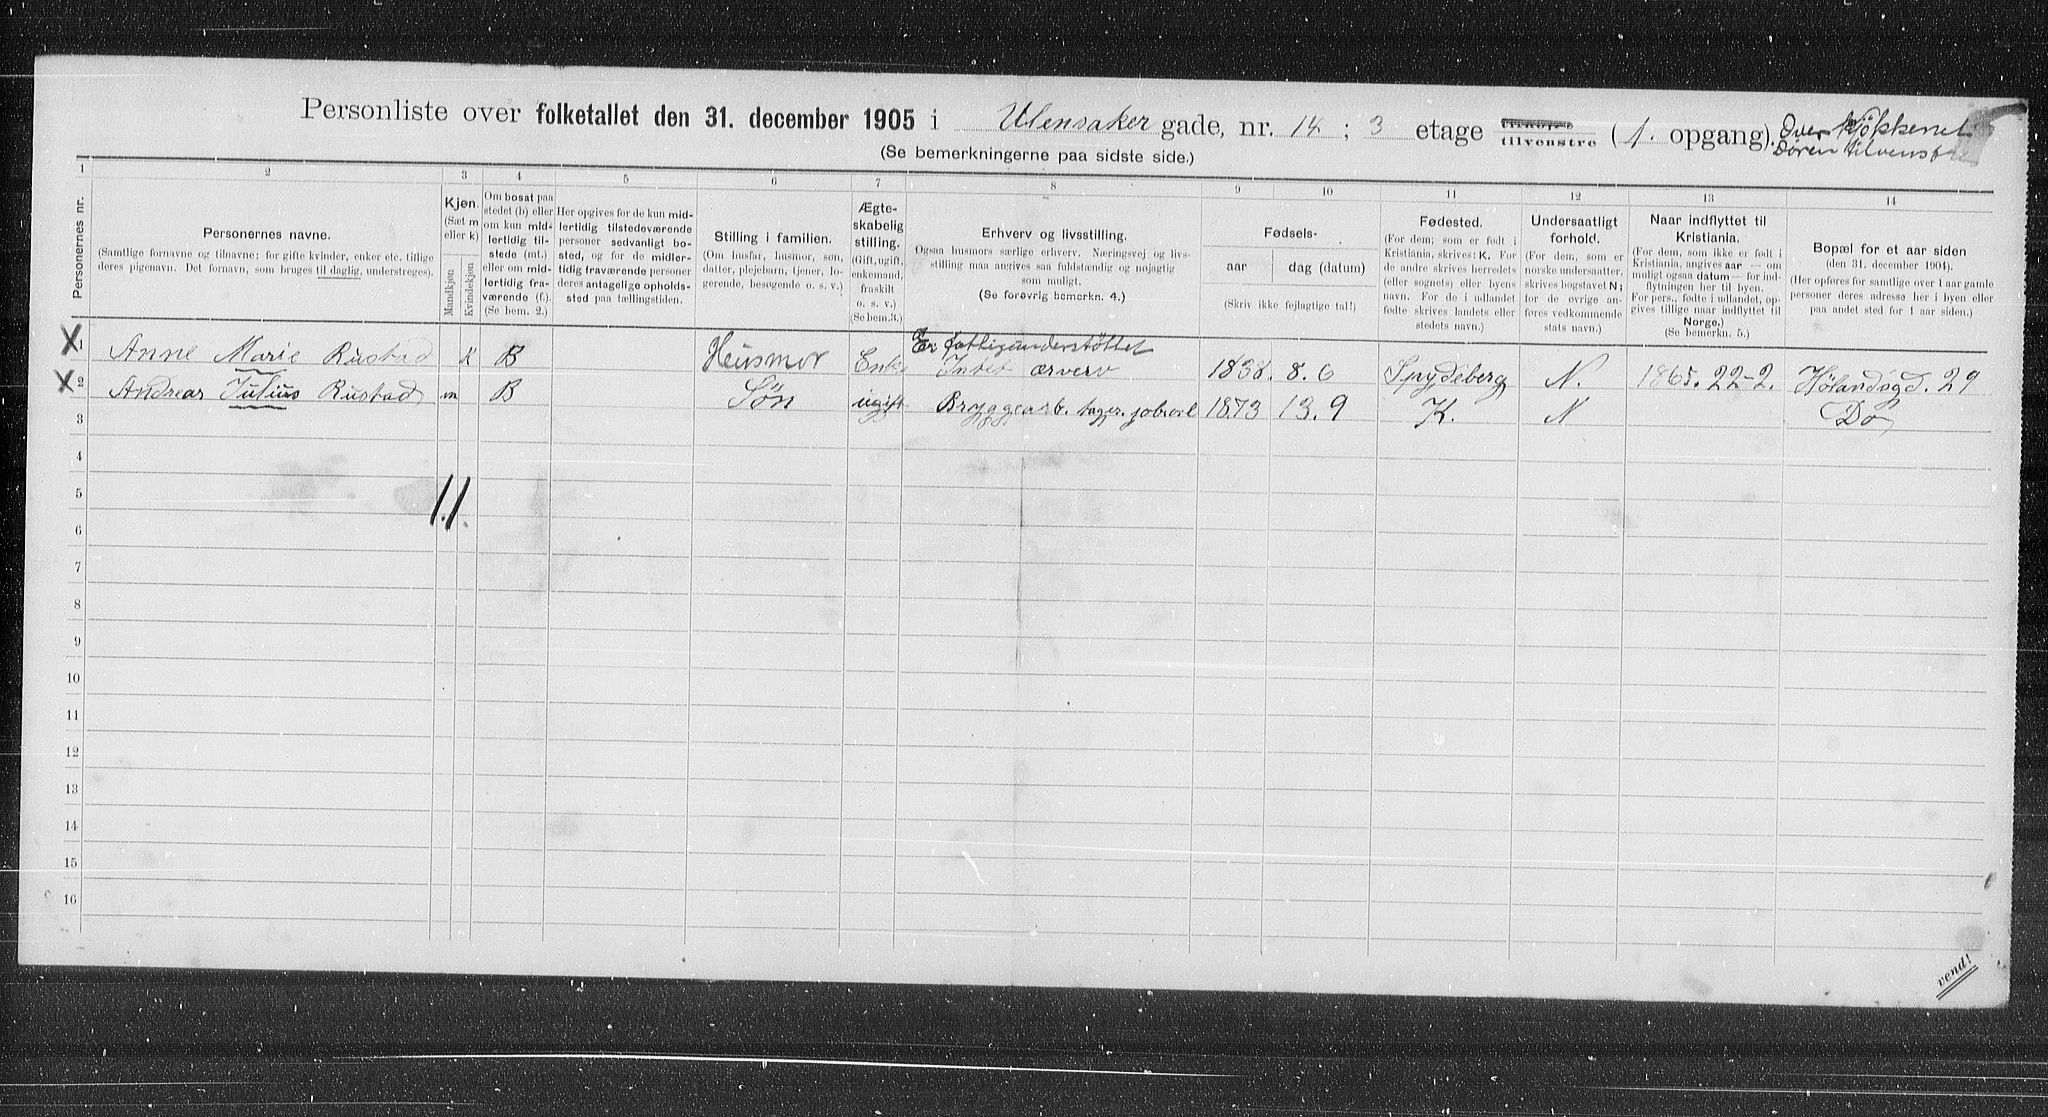 Personliste over folketallet den 31. december 1905 i Ulensaker gade, nr. 14 ; 3 etage tilhøire tilvenstre ( 1. opgang). Over Kjøkkenet
Døren tilvenstre
(Se bemerkningerne paa sidste side.)
1 2 3 4 5 6 7 8 9 10 11 12 13 14
Personernes nr.
Personernes navne.
(Samtlige fornavne og tilnavne; for gifte kvinder, enker etc. tillige
deres pigenavn. Det fornavn, som bruges til daglig, understreges).
Kjøn.
(Sæt m
eller k)
Mandkjøn
Kvindekjøn
Om bosat paa
stedet (b) eller
om kun mid-
lertidig til-
stede (mt.)
eller om mid-
lertidig fra-
værende (f.).
(Se bem. 2.)
Her opgives for de kun mid-
lertidig tilstedeværende
personer sedvanligt bo-
sted, og for de midler-
tidig fraværende personer
deres antagelige opholds-
sted paa tællingstiden.
Stilling i familien.
(Om husfar, husmor, søn,
datter, plejebarn, tjener, lo-
gerende, besøgende o. s. v.)
Ægte-
skabelig
stilling.
(Gift, ugift,
enkemand,
fraskilt
o. s. v.)
(Se bem.3.)
Erhverv og livsstilling.
Ogsaa husmors særlige erhverv. Næringsvej og livs-
stilling maa angives saa fuldstændig og nøjagtig
som muligt.
(Se forøvrig bemerkn. 4.)
Fødsels-
aar
dag (datum)
(Skriv ikke fejlagtige tal!)
Fødested.
(For dem, som er født i
Kristiania, skrives: K. For
de andre skrives herredets
(eller sognets) eller byens
navn. For de i udlandet
fødte skrives landets eller
stedets navn.)
Undersaatligt
forhold.
(For dem, som er
norske undersaatter,
skrives bogstavet N;
for de øvrige an-
føres vedkommende
stats navn.)
Naar indflyttet til
Kristiania.
(For dem, som ikke er født i
Kristiania, angives aar — om
muligt ogsaa datum — for ind-
flytningen her til byen.
For pers., fødte i udlandet, op-
gives tillige naar indflyttet til
Norge.)
(Se bemerkn. 5.)
Bopæl for et aar siden
(den 31. december 1904).
(Her opføres for samtlige over 1 aar gamle
personer deres adresse her i byen eller
paa andet sted for 1 aar siden.)
Er fattigunderstøttet
X 1 Anne Marie Rustad k B Husmor Enke Intet ærverv 1838. 8. 6 Spydeberg N. 1865. 22-2. Hølandsgd. 29
X 2 Andreas Julius Rustad m B Søn ugift Bryggearb. tager. 1873 13. 9 K. N Do
3
4
5
1.1.
6
7
8
9
10
11
12
13
14
15
16
vend!